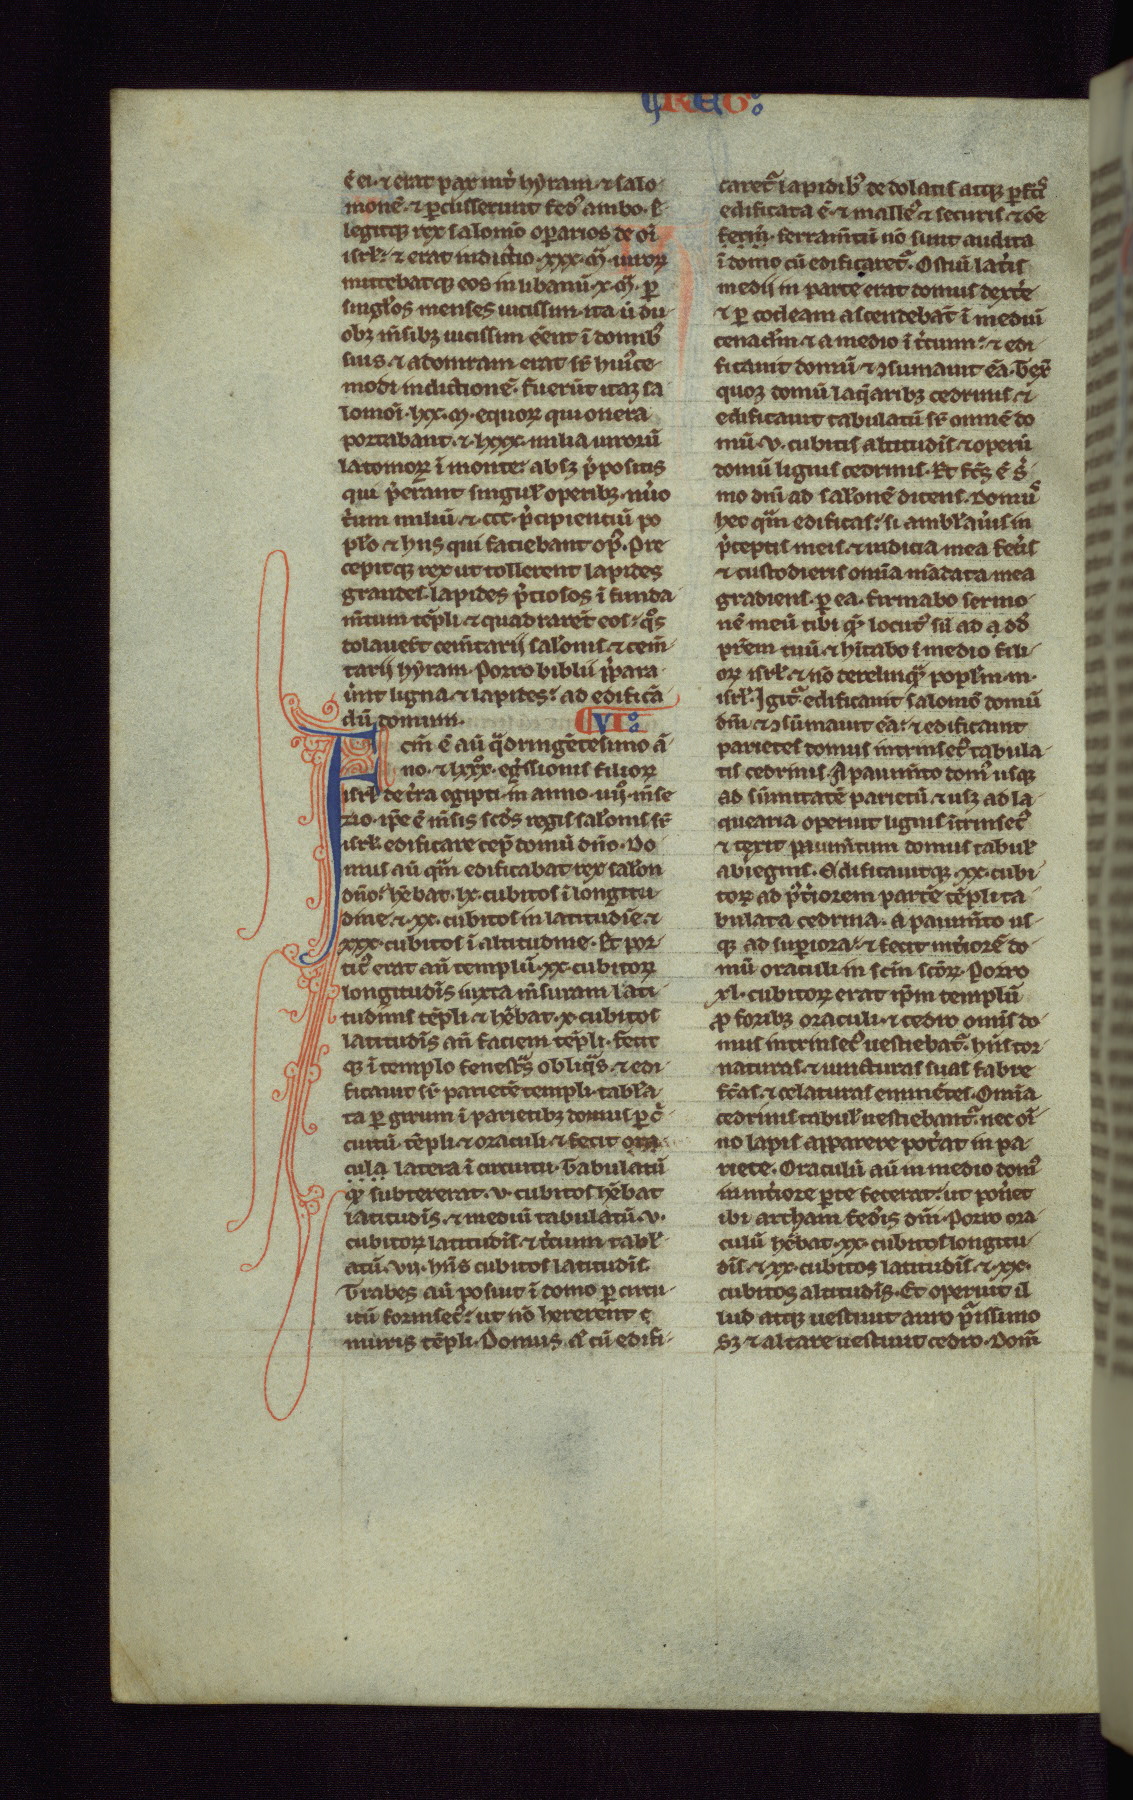 REG
ē ei· ⁊ erat pax int̾ hyram ⁊ salo
monē· ⁊ ꝑcusserunt fed᷒ ambo· E
legitqꝫ rex salomō oꝑarios de oī
isrl̾· ⁊ erat indictio ·xxx· m̄· uiroꝝ
mittebatqꝫ eos in libanū ·x· m̄· ꝑ
singl̾os menses uicissim· ita ù du
obꝫ m̄sibꝫ uicissim eēnt ī domib᷒
suis· ⁊ adoniram erat sr̄ hui᷒ce
modi indictionē· fuerūt itaqꝫ sa
lomōi ·lxx· m̄· equoꝝ qui onera
portabant· ⁊ lxxx· milia uiroꝝ
latomoꝝ ī monte· absqꝫ p̄positis
qui p̄erant singul̾ operibꝫ· nūo
t̾um miliū· ⁊ ccc· p̄cipientiū po
pl̾o ⁊ hiis qui faciebant op᷒· Pre
cepitqꝫ rex ut tollerent lapides
grandes· lapides p̄ciosos ī funda
m̄tum tēpli· ⁊ quadrarēt eos· qͦs
dolauēt cem̄tarij salōnis· ⁊ cem̄
tarij hyram· Porro biblii p̄para
ūnt ligna ⁊ lapides· ad edificā
dū domum· VI
Fcm̄ ē aū q̄dringētesimo ā
no· ⁊ lxxx· eg̾ssionis filioꝝ
isrl̾ de t̾ra egipti· in anno ·iiijͦ· m̄se
zio· ip̄e ē m̄sis scd̾s regis salōnis sr̄
isrl̾· edificare cep̄ domū dn̄o· Do
mus aū qm̄ edificabat rex salōn
dn̄o· hēbat ·lx· cubitos ī longitu
dine· ⁊ ·xx· cubitos in latitudīe· ⁊
xxx· cubitos ī altitudine· Et por
tic᷒ erat an̄ templū ·xx· cubitoꝝ
longitudīs iuxta m̄suram lati
tudinis tēpli· ⁊ hēbat ·x· cubitos
latitudīs an̄ faciem tēpli· fecit
qꝫ ī templo fenest̄s obliqͣs· ⁊ edi
ficauit sr̄ parietē templi· tabl̾a
ta ꝑ girum ī parietibꝫ domus ꝑ c̾
cuitū tēpli ⁊ oraculi· ⁊ fecit ora
cula latera ī circuitu· Tabulatū
qͦ subtererat ·v· cubitos hēbat
latitudīs· ⁊ mediū tabulatū ·vi·
cubitoꝝ latitudīs· ⁊ t̾cium tabl̾
atū ·vij· hn̄s cubitos latitudīs·
Trabes aū posuit ī domo ꝑ circu
itū forinsec᷒· ut nō hererent
muris tēpli· Domus aū cū edifi
caret̾ lapidib᷒ de dolatis atqꝫ ꝑfc̄s
edificata ē· ⁊ malle᷒ ⁊ securis ⁊ oē
ferm̄· ferram̄tū nō sunt audita
ī domo cū edificaret̾· Ostiū lat̾is
medij in parte erat domus dext̾e
⁊ ꝑ cocleam ascendebāt ī mediū
cenacl̾m· ⁊ a medio ī t̾cium· ⁊ edi
ficauit domū· ⁊ ꝯsumauit eā· Tex̾
quoqꝫ domū laq̄aribꝫ cedrinis· ⁊
edificauit tabulatū sr̄ omnē do
mū ·v· cubitis altitudīs· ⁊ operū
domū lignis cedrinis· Et fc̄s ē s̾
mo dn̄i ad salōnē dicens· Domus
hec qm̄ edificas· si ambl̾auīs in
p̄ceptis meis· ⁊ iudicia mea fec̾is
⁊ custodieris omīa mādata mea
gradiens ꝑ ea· firmabo sermo
nē meū tibi qͦ locut᷒ sū ad dd̄
pr̄em tuū· ⁊ hītabo ī medio fili
oꝝ isrl̾· ⁊ nō derelinqͣ popl̾m m̄
isrl̾· Igit̾ edificauit salomō domū
dn̄i ⁊ ꝯsūmauit eā· ⁊ edificauit
parietes domus intrinsec᷒ tabula
tis cedrinis· A pauim̄to dom᷒ usqꝫ
ad sūmitatē parietū ⁊ usqꝫ ad la
quearia operuit lignis īt̾insec᷒
⁊ texit pauim̄tum domus tabul̾
abiegnis· Edificauitqꝫ ·xx· cubi
toꝝ ad p̄t̾iorem partē tēpli ta
bulata cedrina· a pauim̄to us
qꝫ ad suꝑiora· ⁊ fecit int̾iorē do
mū oraculi in scm̄ scōꝝ· Porro
xl· cubitoꝝ erat ip̄m templū
ꝓ foribꝫ oraculi· ⁊ cedro omīs do
mus intrinsec᷒ uestiebat̾· hn̄s tor
naturas· ⁊ iuncturas suas fabre
fc̄as· ⁊ celaturas eminētes· Omīa
cedrinis tabul̾ uestiebant̾· nec oī
no lapis apparere pot̾at in pa
riete· Oraculū aū in medio dom᷒
in int̾iore ꝑte fecerat· ut poneret
ibi archam fed̾is dn̄i· Porro ora
culū hēbat ·xx· cubitos longitu
dīs· ⁊ ·xx· cubitos latitudīs ⁊ ·xx·
cubitos altitudīs· Et operuit il
lud atqꝫ uestiuit auro p̄issimo
Sꝫ ⁊ altare uestiuit cedro· Dom̄